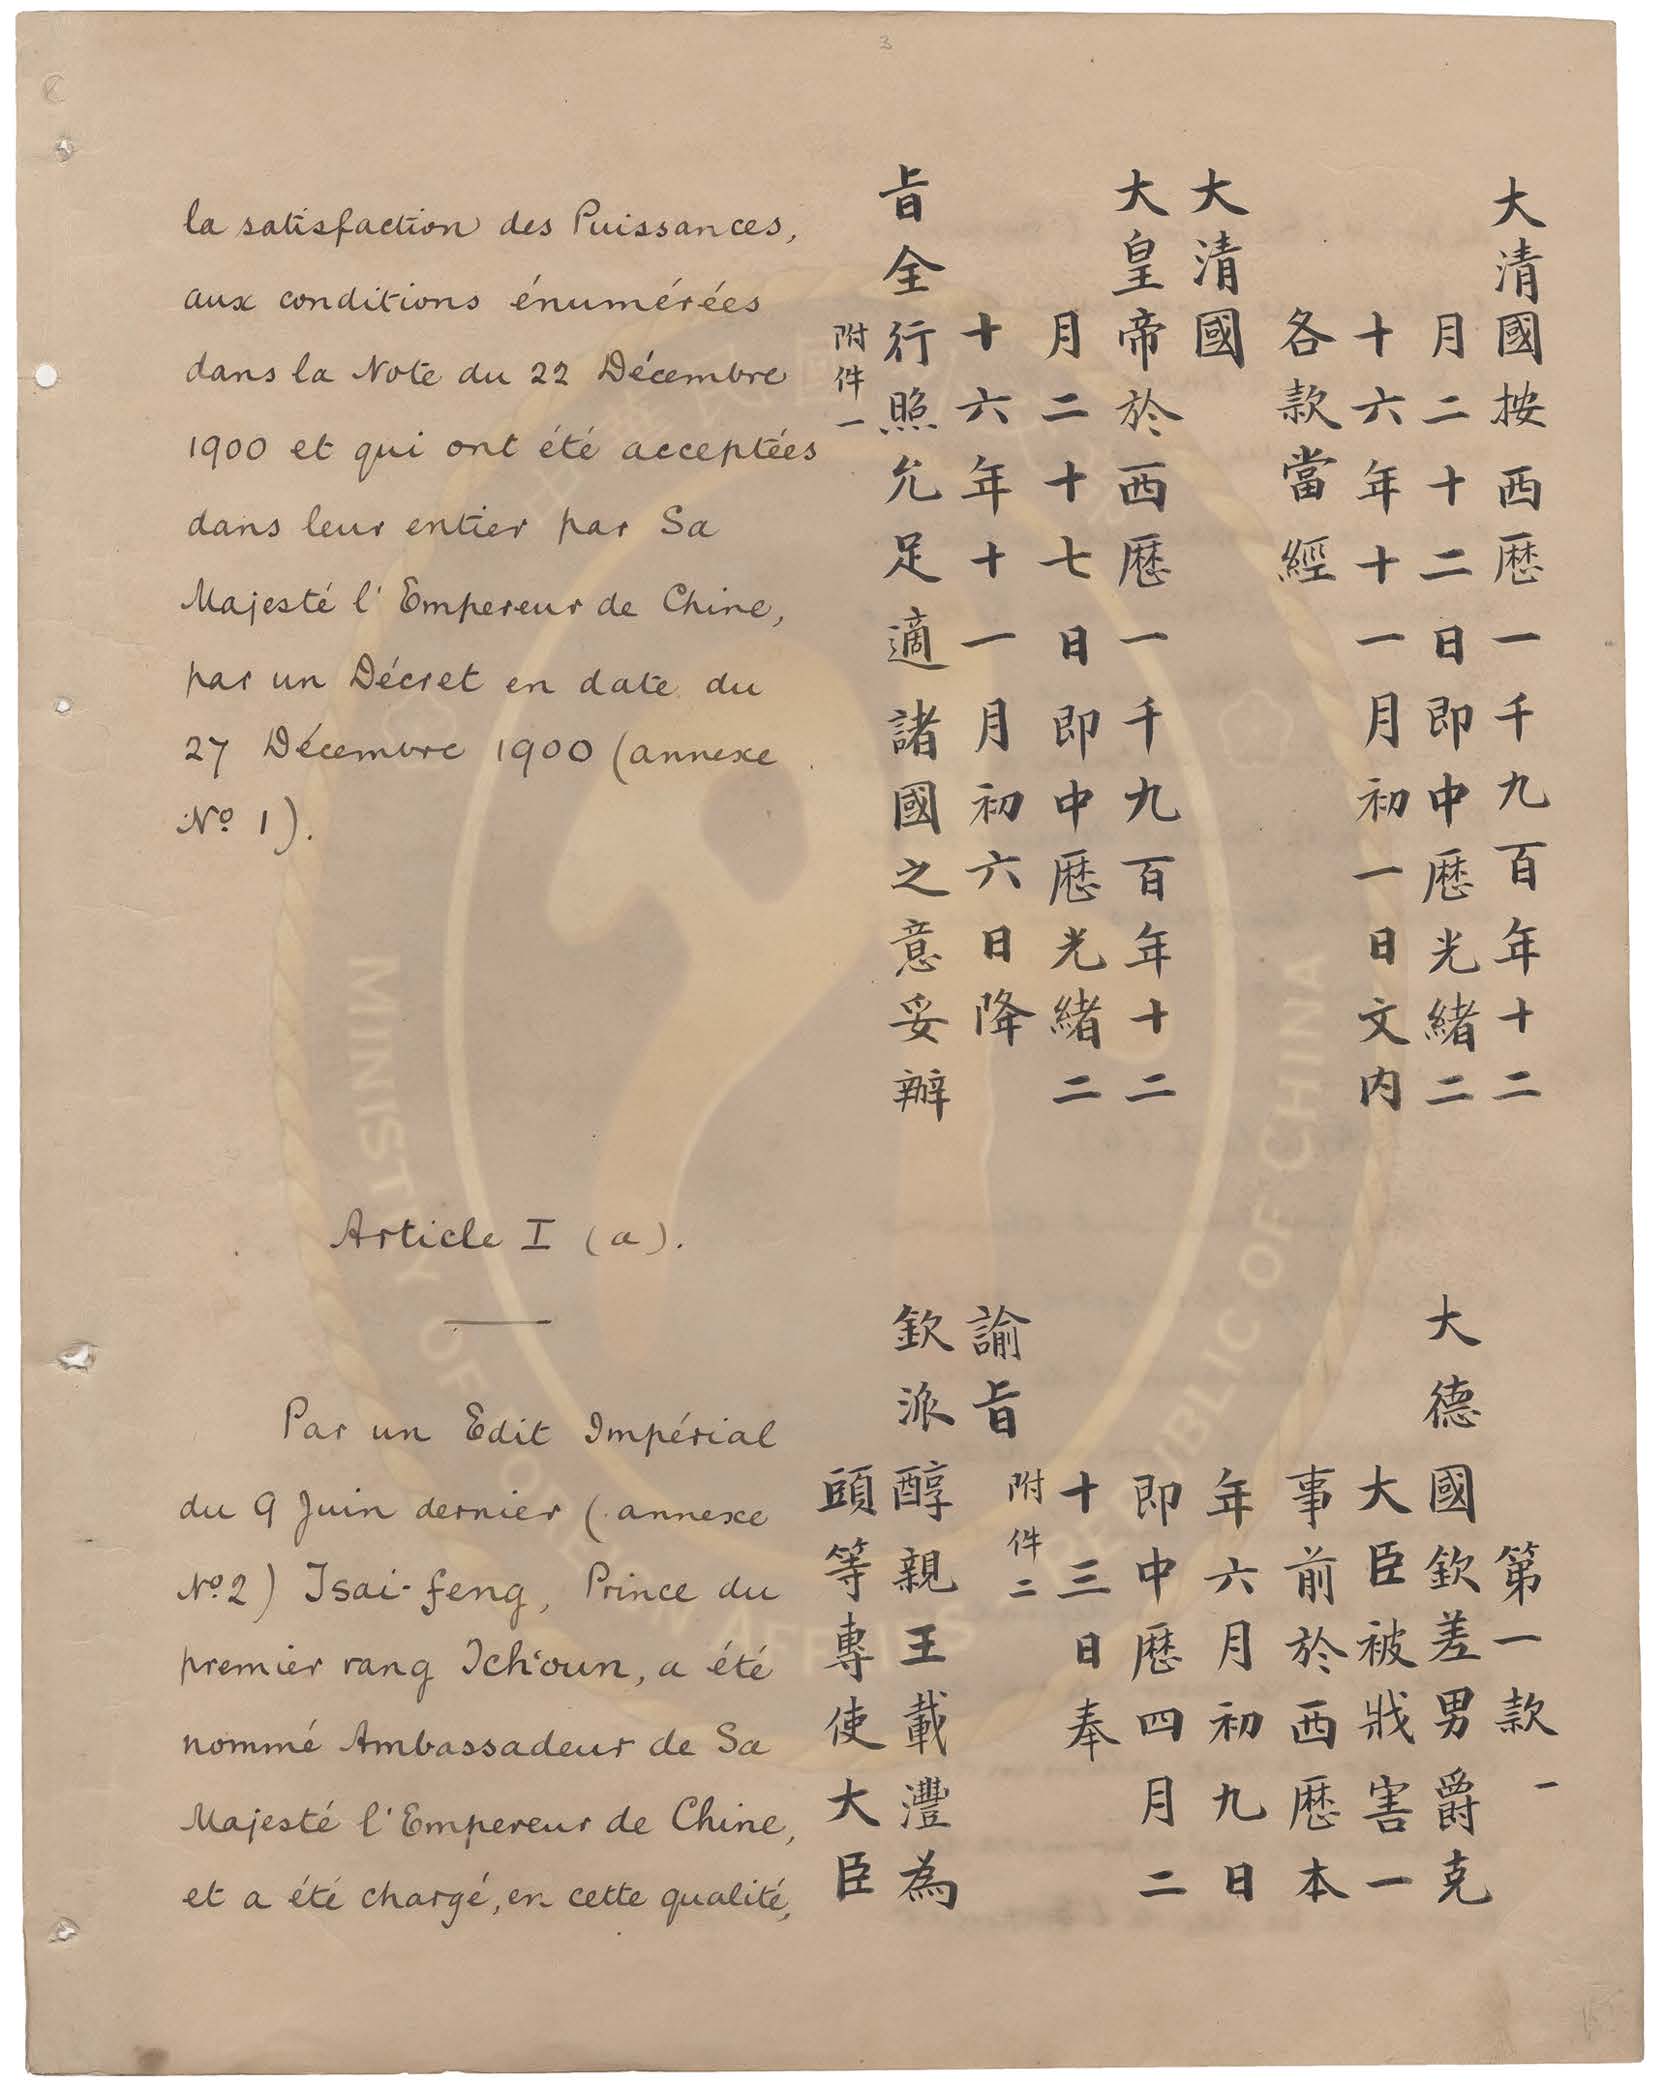 3
la satisfaction des Puissances,
aux conditions énumérées
dans la Note du 22 Décembre
1900 et qui ont été acceptées
dans leur entier par Sa
Majesté l'Empereur de Chine,
par un Décret en date du
27 Décembre 1900 (annexe
No 1).
大清國按西歷一千九百年十二
月二十二日即中歷光緒二
十六年十一月初一日文内
各款當經
大清國
大皇帝於西歷一千九百年十二
月二十七日即中歷光緒二
十六年十一月初六日降
旨全行照允足適諸國之意妥辦
附件一
Article I (a).
Par un Edit Impérial
du 9 Juin dernier (annexe
No 2) Tsai-feng, Prince du
premier rang Tch'oun, a été
nommé Ambassadeur de Sa
Majesté l'Empereur de Chine,
et a été chargé, en cette qualité,
第一款一
大德國欽差男爵克
大臣被戕害一
事前於西歷本
年六月初九日
即中歷四月二
十三日奉
諭旨附件二
欽派醇親王載灃為
頭等專使大臣
MINISTRY OF FOREIGN AFFAIRS
REPUBLIC OF CHINA